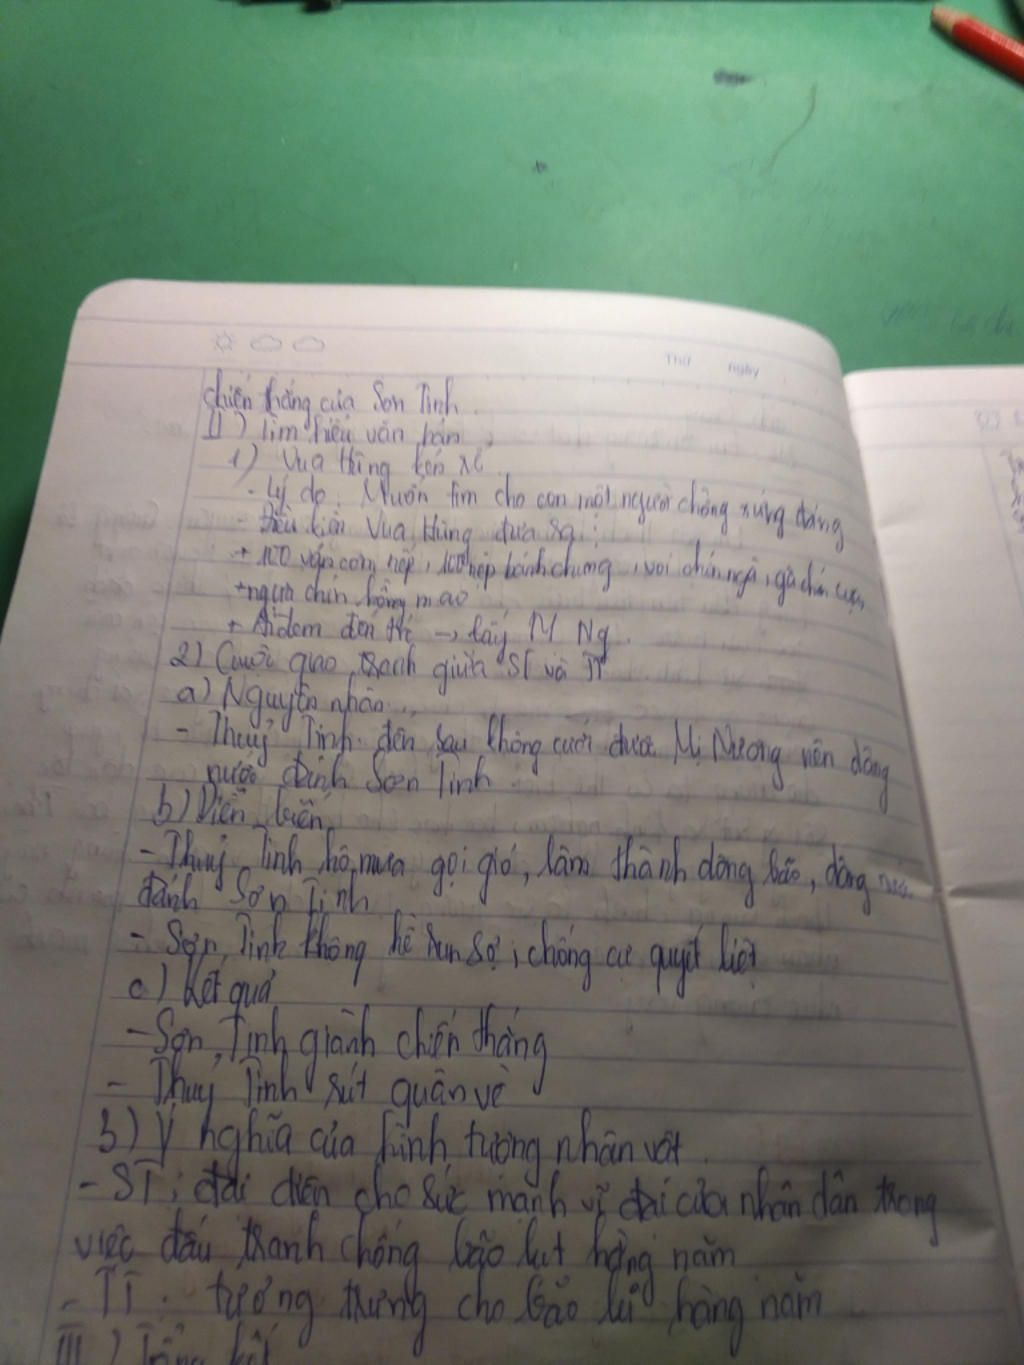 Thứ ngày
chiến thắng của Sơn Tinh.
II) Tìm hiểu văn bản
1) Vua Hùng kén rể
- Lý do: Muốn tìm cho con một người chồng xứng đáng
- Điều kiện Vua Hùng đưa ra:
+ 100 ván cơm nếp, 100 nệp bánh chưng, voi chín ngà, gà chín cựa,
+ ngựa chín hồng mao
+ Ai đem đến thì → lấy M Ng.
2) Cuộc giao tranh giữa ST và TT
a) Nguyên nhân
- Thuỷ Tinh đến sau không cưới được Mị Nương nên dâng
nước đánh Sơn Tinh
b) Diễn biến
- Thuỷ Tinh hô mưa gọi gió, làm thành dông bão, dâng nước
đánh Sơn Tinh
- Sơn Tinh không hề run sợ, chống cự quyết liệt
c) Kết quả
- Sơn Tinh giành chiến thắng
- Thuỷ Tinh rút quân về
3) Ý nghĩa của hình tượng nhân vật.
- ST: đại diện cho sức mạnh vĩ đại của nhân dân trong
việc đấu tranh chống bão lụt hằng năm
- TT: tượng trưng cho bão lũ hàng năm
III) Tổng kết